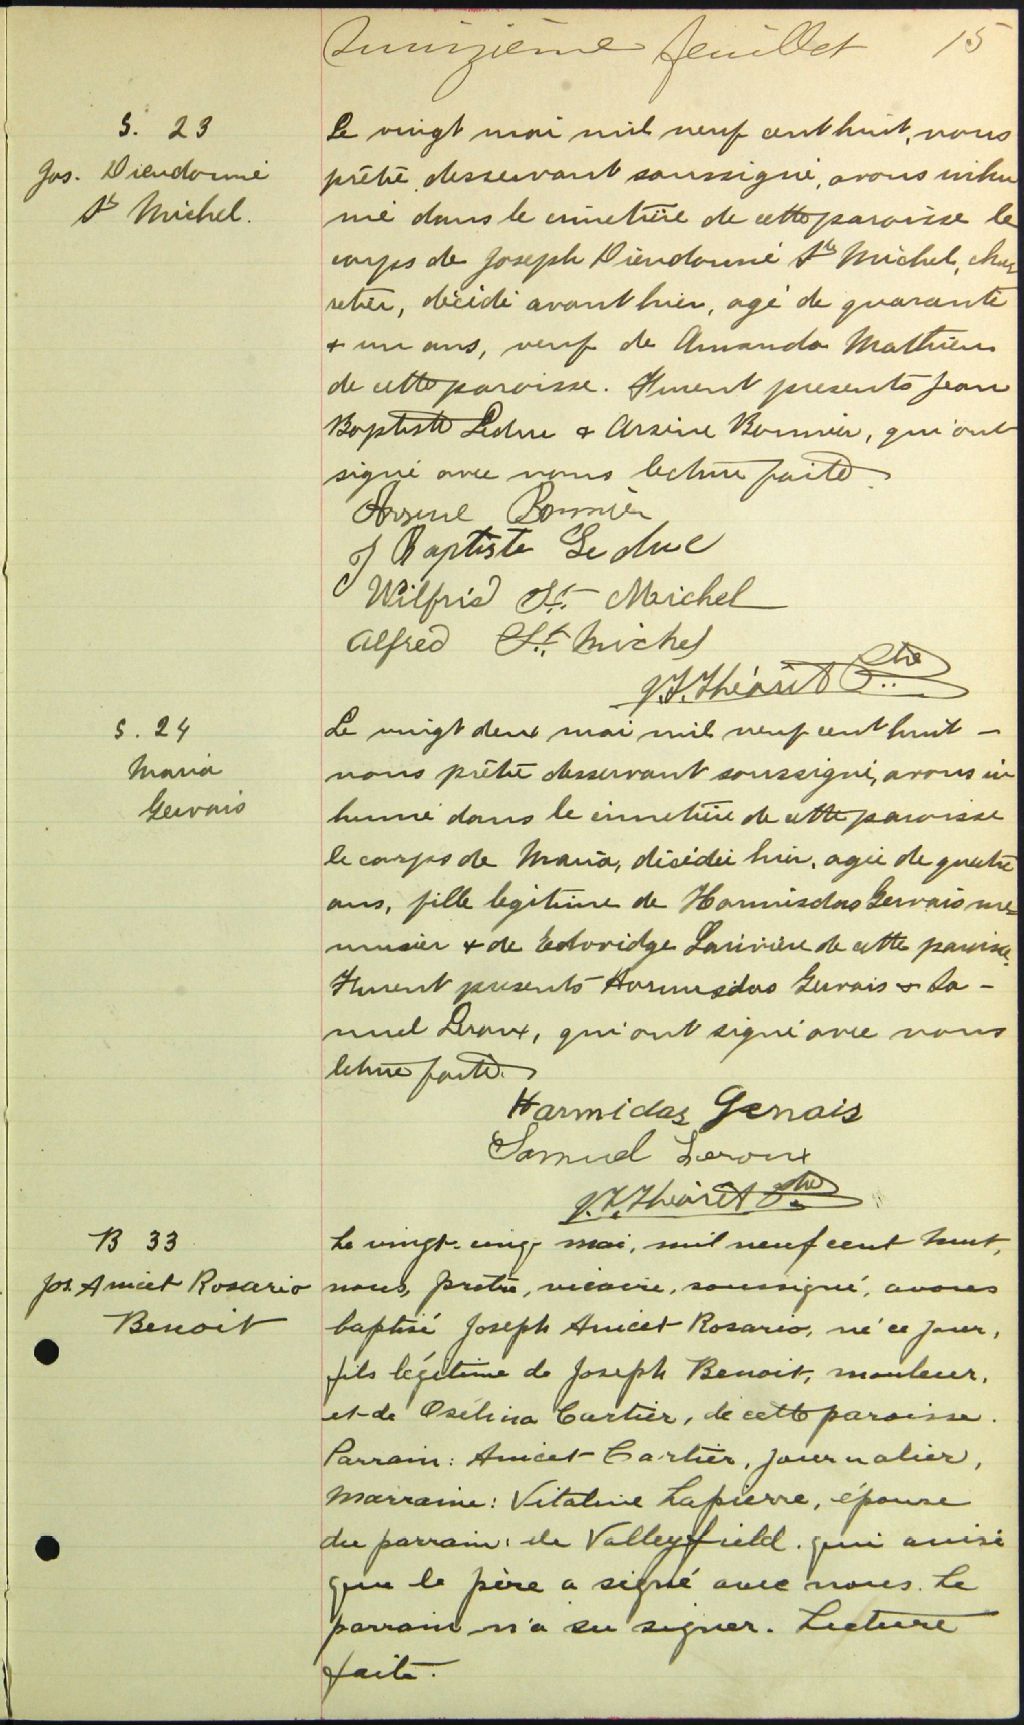 Quinzième feuillet 15
S. 23
Jos. Dieudonné
St Michel.
Le vingt mai mil neuf cent huit, nous
prêtre desservant soussigné, avons inhu
mé dans le cimetière de cette paroisse le
corps de Joseph Dieudonné St Michel, char
retier, décédé avant hier, agé de quarante
& un ans, veuf de Amanda Mathieu
de cette paroisse. Furent presents Jean
Baptiste Leduc & Arsène Bonnier, qui ont
signé avec nous lecture faite.
Arsene Bonnier
J Baptiste Leduc
Wilfrid St. Michel
Alfred St. Michel
J. Théorêt Ptre
S. 24
Maria
Gervais
Le vingt deux mai mil neuf cent huit –
nous prêtre desservant soussigné, avons in
humé dans le cimetière de cette paroisse
le corps de Maria, décédée hier, agée de quatre
ans, fille legitime de Hormisdas Gervais me=
nuisier & de Edwidge Larivière de cette paroisse.
Furent presents Hormisdas Gervais & Sa –
muel Leroux, qui ont signé avec nous
lecture faite.
Harmidas Gervais
Samuel Leroux
J. Théorêt Ptre
B 33
Jos. Anicet Rosario
Benoit
Le vingt-cinq mai, mil neuf cent huit,
nous, prêtre, vicaire, soussigné, avons
baptisé Joseph Anicet Rosario, né ce jour,
fils légitime de Joseph Benoit, mouleur,
et de Osélina Cartier, de cette paroisse.
Parrain: Anicet Cartier, journalier,
Marraine: Vitaline Lapierre, épouse
du parrain, de Valleyfield. qui ainsi
que le père a signé avec nous. Le
parrain n'a su signer. Lecture
faite.